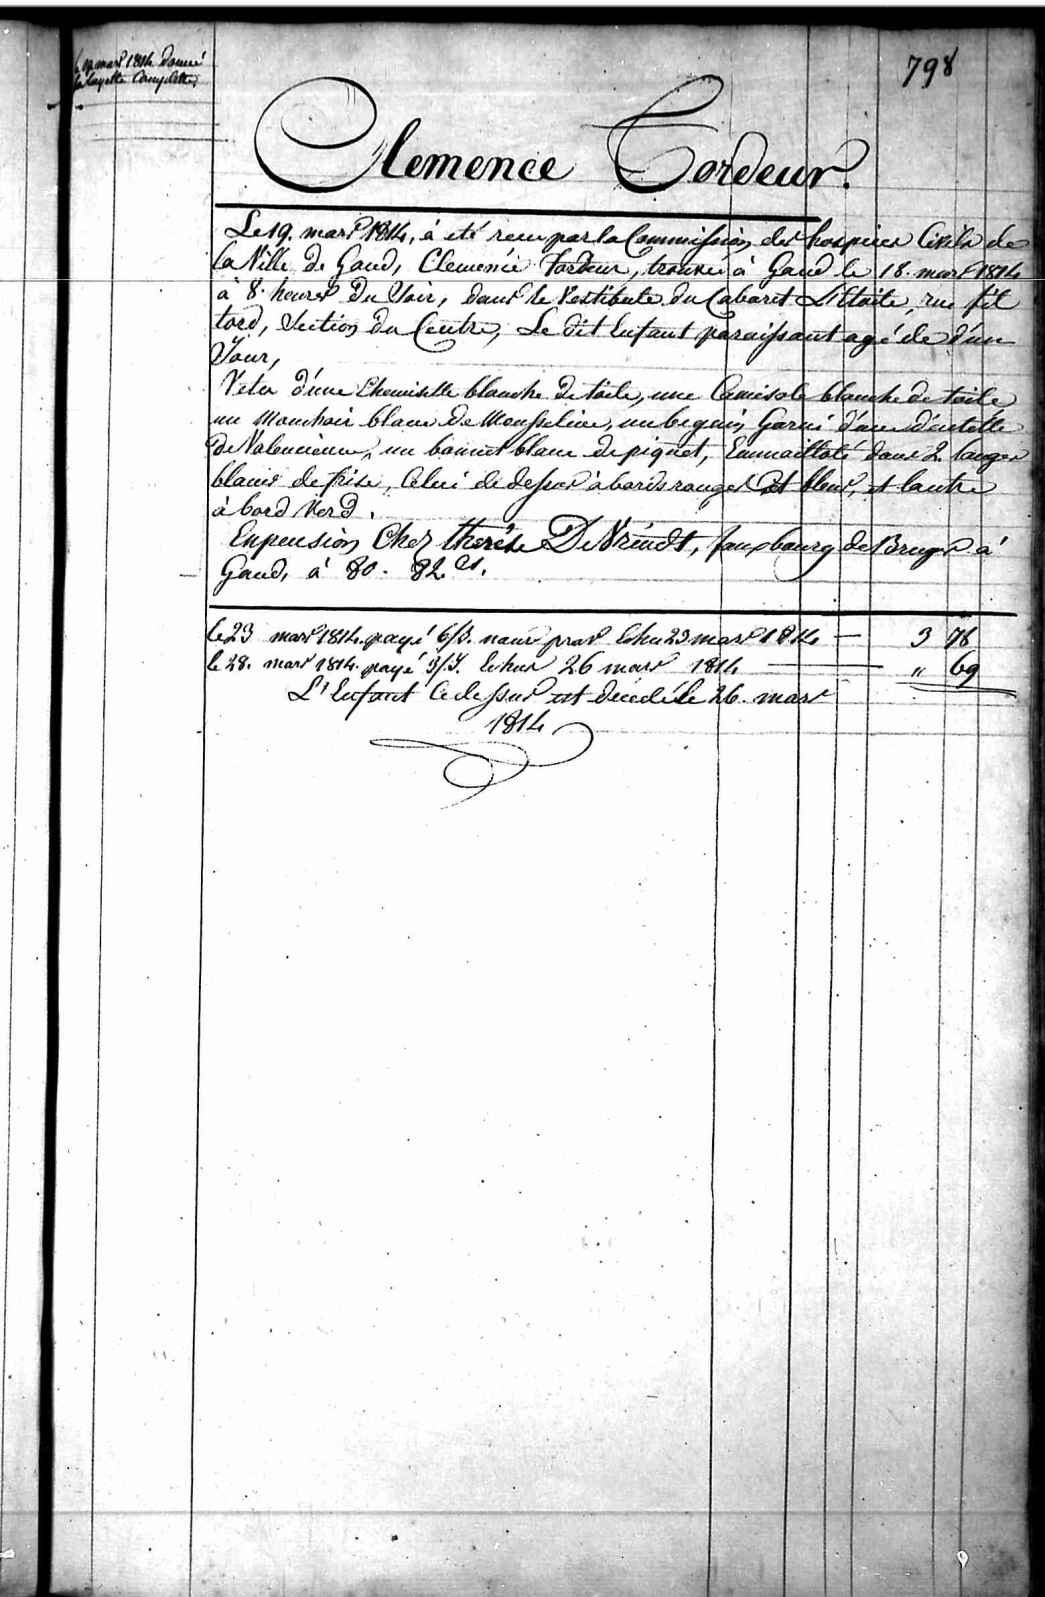 le 19 mars 1814 donné
la layette Complette,
798
Clemence Tordeur.
Le 19. mars 1814, à eté recu par la Commission des hospices Civils de
la Ville de Gand, Clemence Tordeur, trouvé à Gand le 18. mars 1814
à 8. heures du Soir, dans le Vestibule du Cabaret L'Etoile, rue fil
tord, Section du Centre, Le dit Enfant paraissant agé de d'un
Jour,
Vetu d'une Chemisette blanche de toile, une Camisole blanche de toile
un mouchoir blanc de Mousseline, un beguin Garni d'une dentelle
de Valencienne, un bonnet blanc de piquet, Emmailloté dans 2. langes
blancs de frise, Celui de dessus à bords rouges et bleus, et l'autre
à bord Verd.
En pension Chez therése De Vriendt, fauxbourg de Bruges à
Gand, à 80. 82. cs.
le 23 mars 1814. payé 6/3. echu 23 mars 1814 — 3 78
le 28. mars 1814. payé echus 26 mars 1814 — " 69
L'Enfant Cidessus est décédé le 26. mars
1814